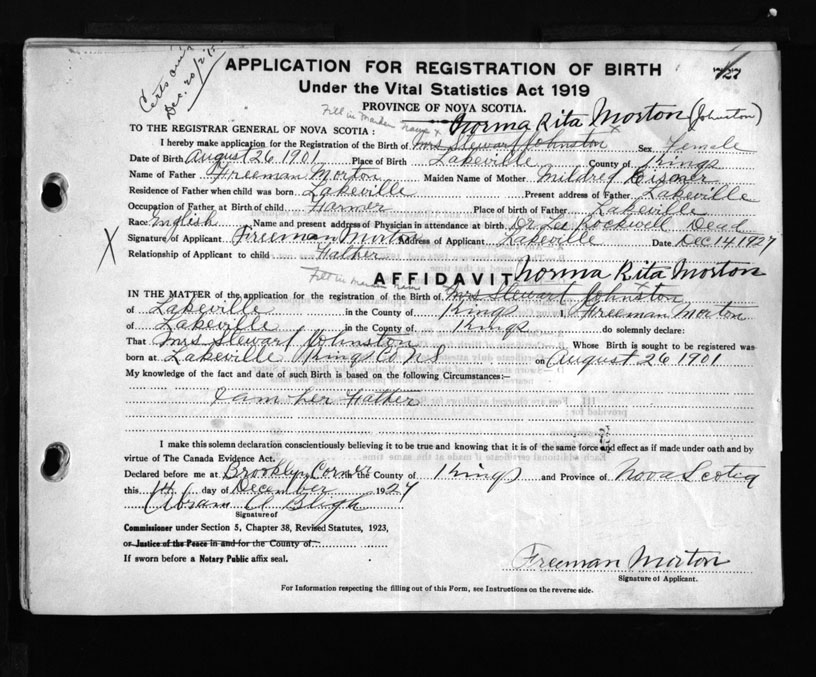 Certs
Dec. 20/27
APPLICATION FOR REGISTRATION OF BIRTH
Under the Vital Statistics Act 1919
PROVINCE OF NOVA SCOTIA.
Fill in Maiden name x Norma Rita Morton (Johnston)
TO THE REGISTRAR GENERAL OF NOVA SCOTIA:
I hereby make application for the Registration of the Birth of Mrs Stewart Johnston Sex Female
Date of Birth August 26 1901 Place of Birth Lakeville County of Kings
Name of Father Freeman Morton Maiden Name of Mother Mildred Eisner
Residence of Father when child was born Lakeville Present address of Father Lakeville
Occupation of Father at Birth of child Farmer Place of birth of Father Lakeville
Race English Name and present address of Physician in attendance at birth Dr. Lee Rockwell Dead
X Signature of Applicant Freeman Morton Address of Applicant Lakeville Date Dec 14 1927
Relationship of Applicant to child Father
AFFIDAVIT Norma Rita Morton
Fill in maiden name x
IN THE MATTER of the application for the registration of the Birth of Mrs Stewart Johnston
of Lakeville in the County of Kings I Freeman Morton
of Lakeville in the County of Kings do solemnly declare:
That Mrs Stewart Johnston Whose Birth is sought to be registered was
born at Lakeville Kings Co N S on August 26 1901
My knowledge of the fact and date of such Birth is based on the following Circumstances:—
I am her Father
I make this solemn declaration conscientiously believing it to be true and knowing that it is of the same force and effect as if made under oath and by
virtue of The Canada Evidence Act.
Declared before me at Brooklyn Corner in the County of Kings and Province of Nova Scotia
this 14 day of December 1927
Abram A Bligh
Signature of
Commissioner under Section 5, Chapter 38, Revised Statutes, 1923,
or Justice of the Peace in and for the County of
If sworn before a Notary Public affix seal.
Freeman Morton
Signature of Applicant.
For Information respecting the filling out of this Form, see Instructions on the reverse side.